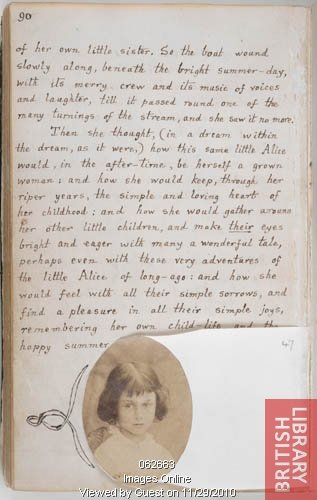 90
of her own little sister. So the boat wound
slowly along, beneath the bright summer-day,
with its merry crew and its music of voices
and laughter, till it passed round one of the
many turnings of the stream, and she saw it no more.
Then she thought, (in a dream within
the dream, as it were,) how this same little Alice
would, in the after-time, be herself a grown
woman: and how she would keep, through her
riper years, the simple and loving heart of
her childhood: and how she would gather around
her other little children, and make their eyes
bright and eager with many a wonderful tale,
perhaps even with these very adventures of
the little Alice of long-ago: and how she
would feel with all their simple sorrows, and
find a pleasure in all their simple joys,
remembering her own child-life and the
happy summer
47
BRITISH
LIBRARY
062663
Images Online
Viewed by Guest on 11/29/2010